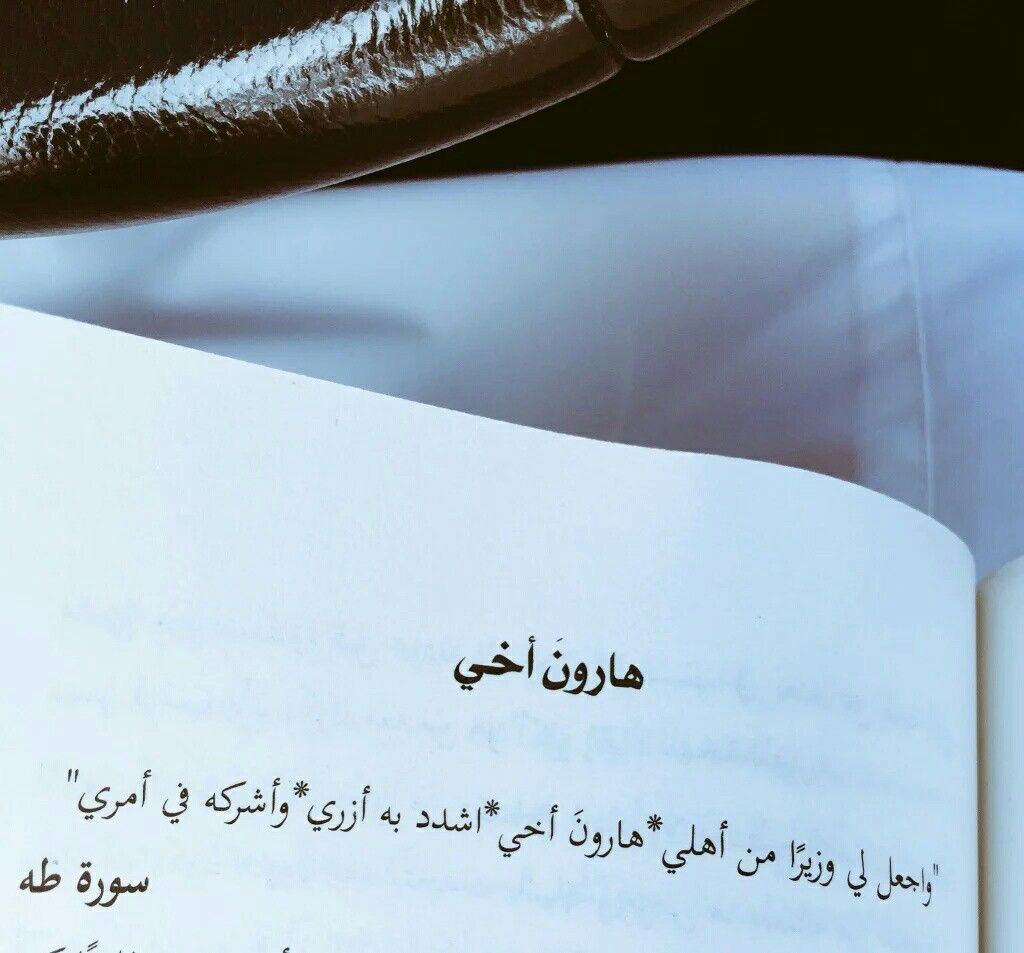 هارونَ أخي
"واجعل لي وزيرًا من أهلي*هارونَ أخي*اشدد به أزري*وأشركه في أمري"
سورة طه